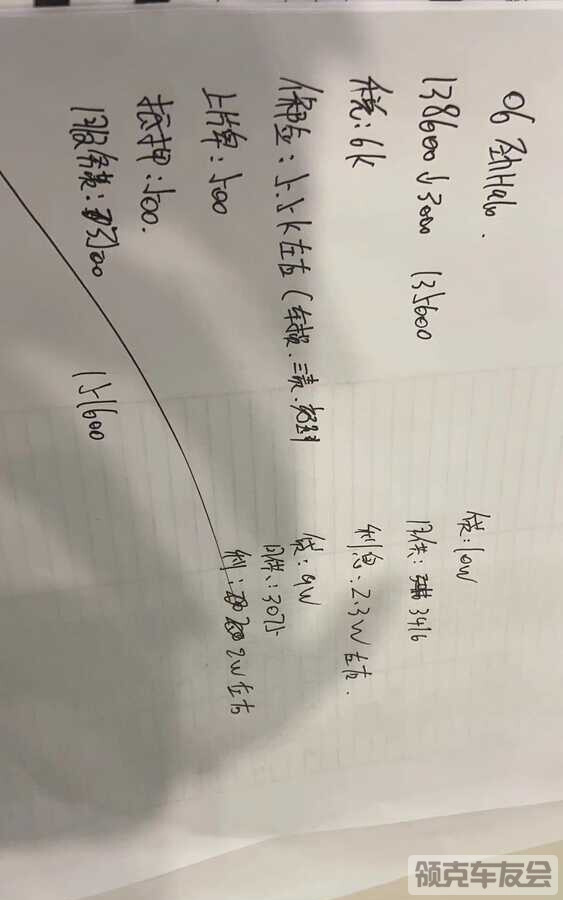 06 劲Halo.
138600↓3000 135600
税:6k
保险:5.5k左右(车损.三责.
上牌:500
抵押:500.
服务费:3500
151600
贷:10W
月供:3416
利息:2.3W左右.
贷:9W
月供:3075
利:2W左右
领克车友会